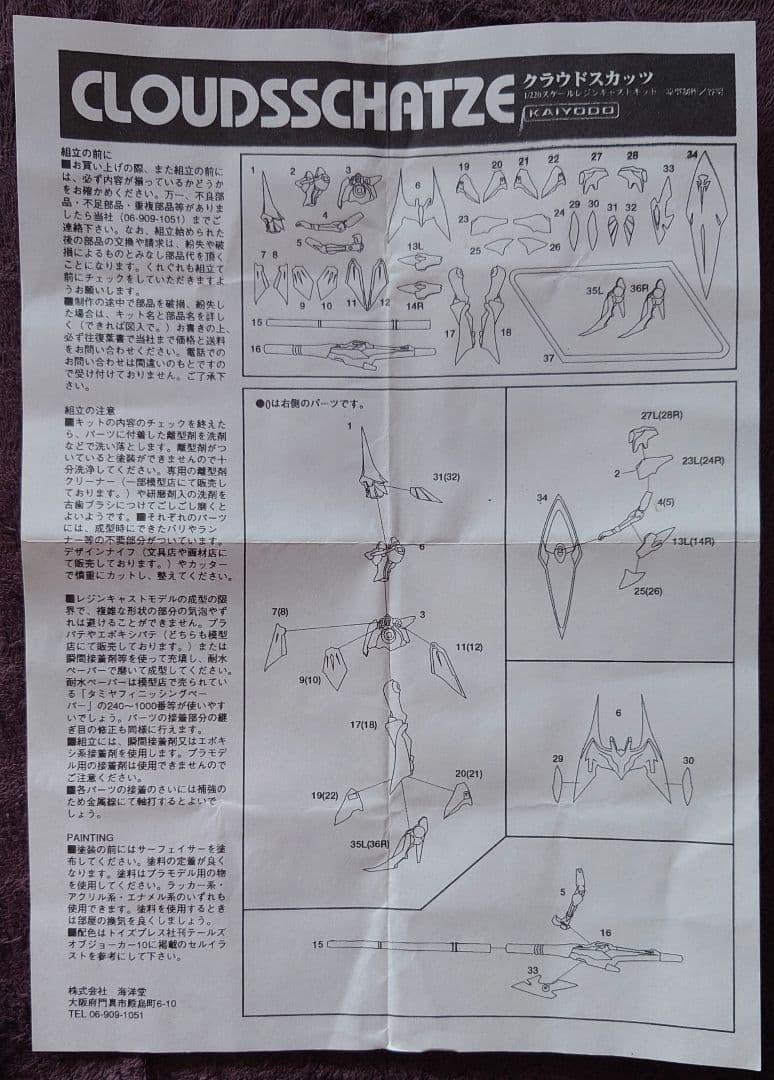 CLOUDSSCHATZE
クラウドスカッツ
1/220スケールレジンキャストキット 原型制作／谷明
KAIYODO
組立の前に
■お買い上げの際、また組立の前に
は、必ず内容が揃っているかどうか
をお確かめください。万一、不良部
品・不足部品・重複部品等がありま
したら当社（06-909-1051）までご
連絡下さい。なお、組立始められた
後の部品の交換や請求は、紛失や破
損によるものとみなし部品代を頂く
ことになります。くれぐれも組立て
前にチェックをしていただきますよ
うお願いします。
■制作の途中で部品を破損、紛失し
た場合は、キット名と部品名を詳し
く（できれば図入で。）お書きの上、
必ず往復葉書で当社まで価格と送料
をお問い合わせください。電話での
お問い合わせは間違いのもとですの
で受け付けておりません。ご了承下
さい。
組立の注意
■キットの内容のチェックを終えた
ら、パーツに付着した離型剤を洗剤
などで洗い落とします。離型剤がつ
いていると塗装ができませんので十
分洗浄してください。専用の離型剤
クリーナー（一部模型店にて販売し
ております。）や研磨剤入の洗剤を
古歯ブラシにつけてごしごし磨くと
よいようです。■それぞれのパーツ
には、成型時にできたバリやラン
ナー等の不要部分がついています。
デザインナイフ（文具店や画材店に
て販売しております。）やカッター
で慎重にカットし、整えてください。
■レジンキャストモデルの成型の限
界で、複雑な形状の部分の気泡やず
れは避けることができません。プラ
パテやエポキシパテ（どちらも模型
店にて販売しております。）または
瞬間接着剤等を使って充填し、耐水
ペーパーで磨いて成型してください。
耐水ペーパーは模型店で売られている
「タミヤフィニッシングペー
パー」の240〜1000番等が使いやす
いでしょう。パーツの接着部分の継
ぎ目の修正も同様に行えます。
■組立には、瞬間接着剤又はエポキ
シ系接着剤を使用します。プラモデ
ル用の接着剤は使用できませんので
ご注意ください。
■各パーツの接着のさいには補強の
ため金属線にて軸打するとよいで
しょう。
PAINTING
■塗装の前にはサーフェイサーを塗
布してください。塗料の定着が良く
なります。塗料はプラモデル用の物
を使用してください。ラッカー系・
アクリル系・エナメル系のいずれも
使用できます。塗料を使用するとき
は部屋の換気を良くしましょう。
■配色はトイズプレス社刊テールズ
オブジョーカー10に掲載のセルイラ
ストを参考にして下さい。
株式会社 海洋堂
大阪府門真市殿島町6-10
TEL 06-909-1051
1 2 3 6 19 20 21 22 27 28 33 34
4 29 30 31 32
5 23 24
13L 25 26
7 8 9 10 11 12 14R 35L 36R
15
16 17 18
37
●()は右側のパーツです。
1
31(32)
6
7(8)
3
9(10)
11(12)
17(18)
19(22)
20(21)
35L(36R)
27L(28R)
2
23L(24R)
34
4(5)
13L(14R)
25(26)
6
29
30
5
15
16
33